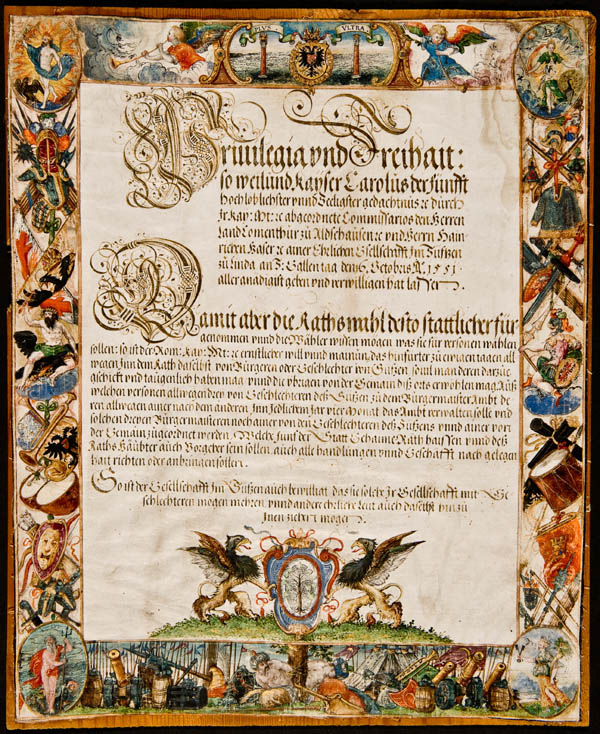 PLVS VLTRA
Priuilegia vnd Freihait:
so weilund Kayser Carolus der Funfft
Hochloblichster vnnd Seeligister gedachtnus ꝛc durch
Jr Kay: Mt: ꝛc abgeordnete Commissarios den Herren
Land Comenthür zu Aldschausen ꝛc vnd Herrn Hain
richen Haser ꝛc ainer Ehrlichen Gesellschafft Im Süfzen
zu Linda an S: Gallen tag den 16. Octobris A.° 1551
aller gnädigist geben vnd verwilligen hat lassen.
Damit aber die Rathswahl desto stattlicher für
genommen vnnd die Wähler wissen mögen was sie für personen wählen
sollen: so ist der Rom: Kay: Mt: ꝛc ernstlicher will vnnd mainung das hinfürter zu ewigen tagen all
wegen Inn dem Rath daselbst von Bürgeren oder Geschlechter souil man deren darzu
geschickt vnd taugenlich haben mag vnnd die vbrigen von der Gemain diß orts erwöhlen mög Auß
welchen personen allwegen drey von Geschlechteren deß Süfzen zu dem Burgermaister Ambt de
ren allwegen ainer nach dem anderen Inn Jedlichem Jar vier Monat das Ambt verwalten solle vnd
solchen dreyen Bürgermaisteren noch ainer von den Geschlechteren deß Süfzens vnnd ainer vor
der Gemain zugeordnet werden, Welche fünf der Statt Gehaime Räth haissen vnnd deß
Raths Häubter auch Vorgeher sein sollen auch alle handlungen vnnd Geschäfft nach gelegen
hait richten oder anbringen sollen.
So ist der Gesellschafft Im Süfzen auch bewilligt das sie solche Jr Gesellschafft mit Ge
schlechteren mögen mehren vnnd andere ehrliche Leut auch daselbst hin zu
Jnen ziehen mögen.